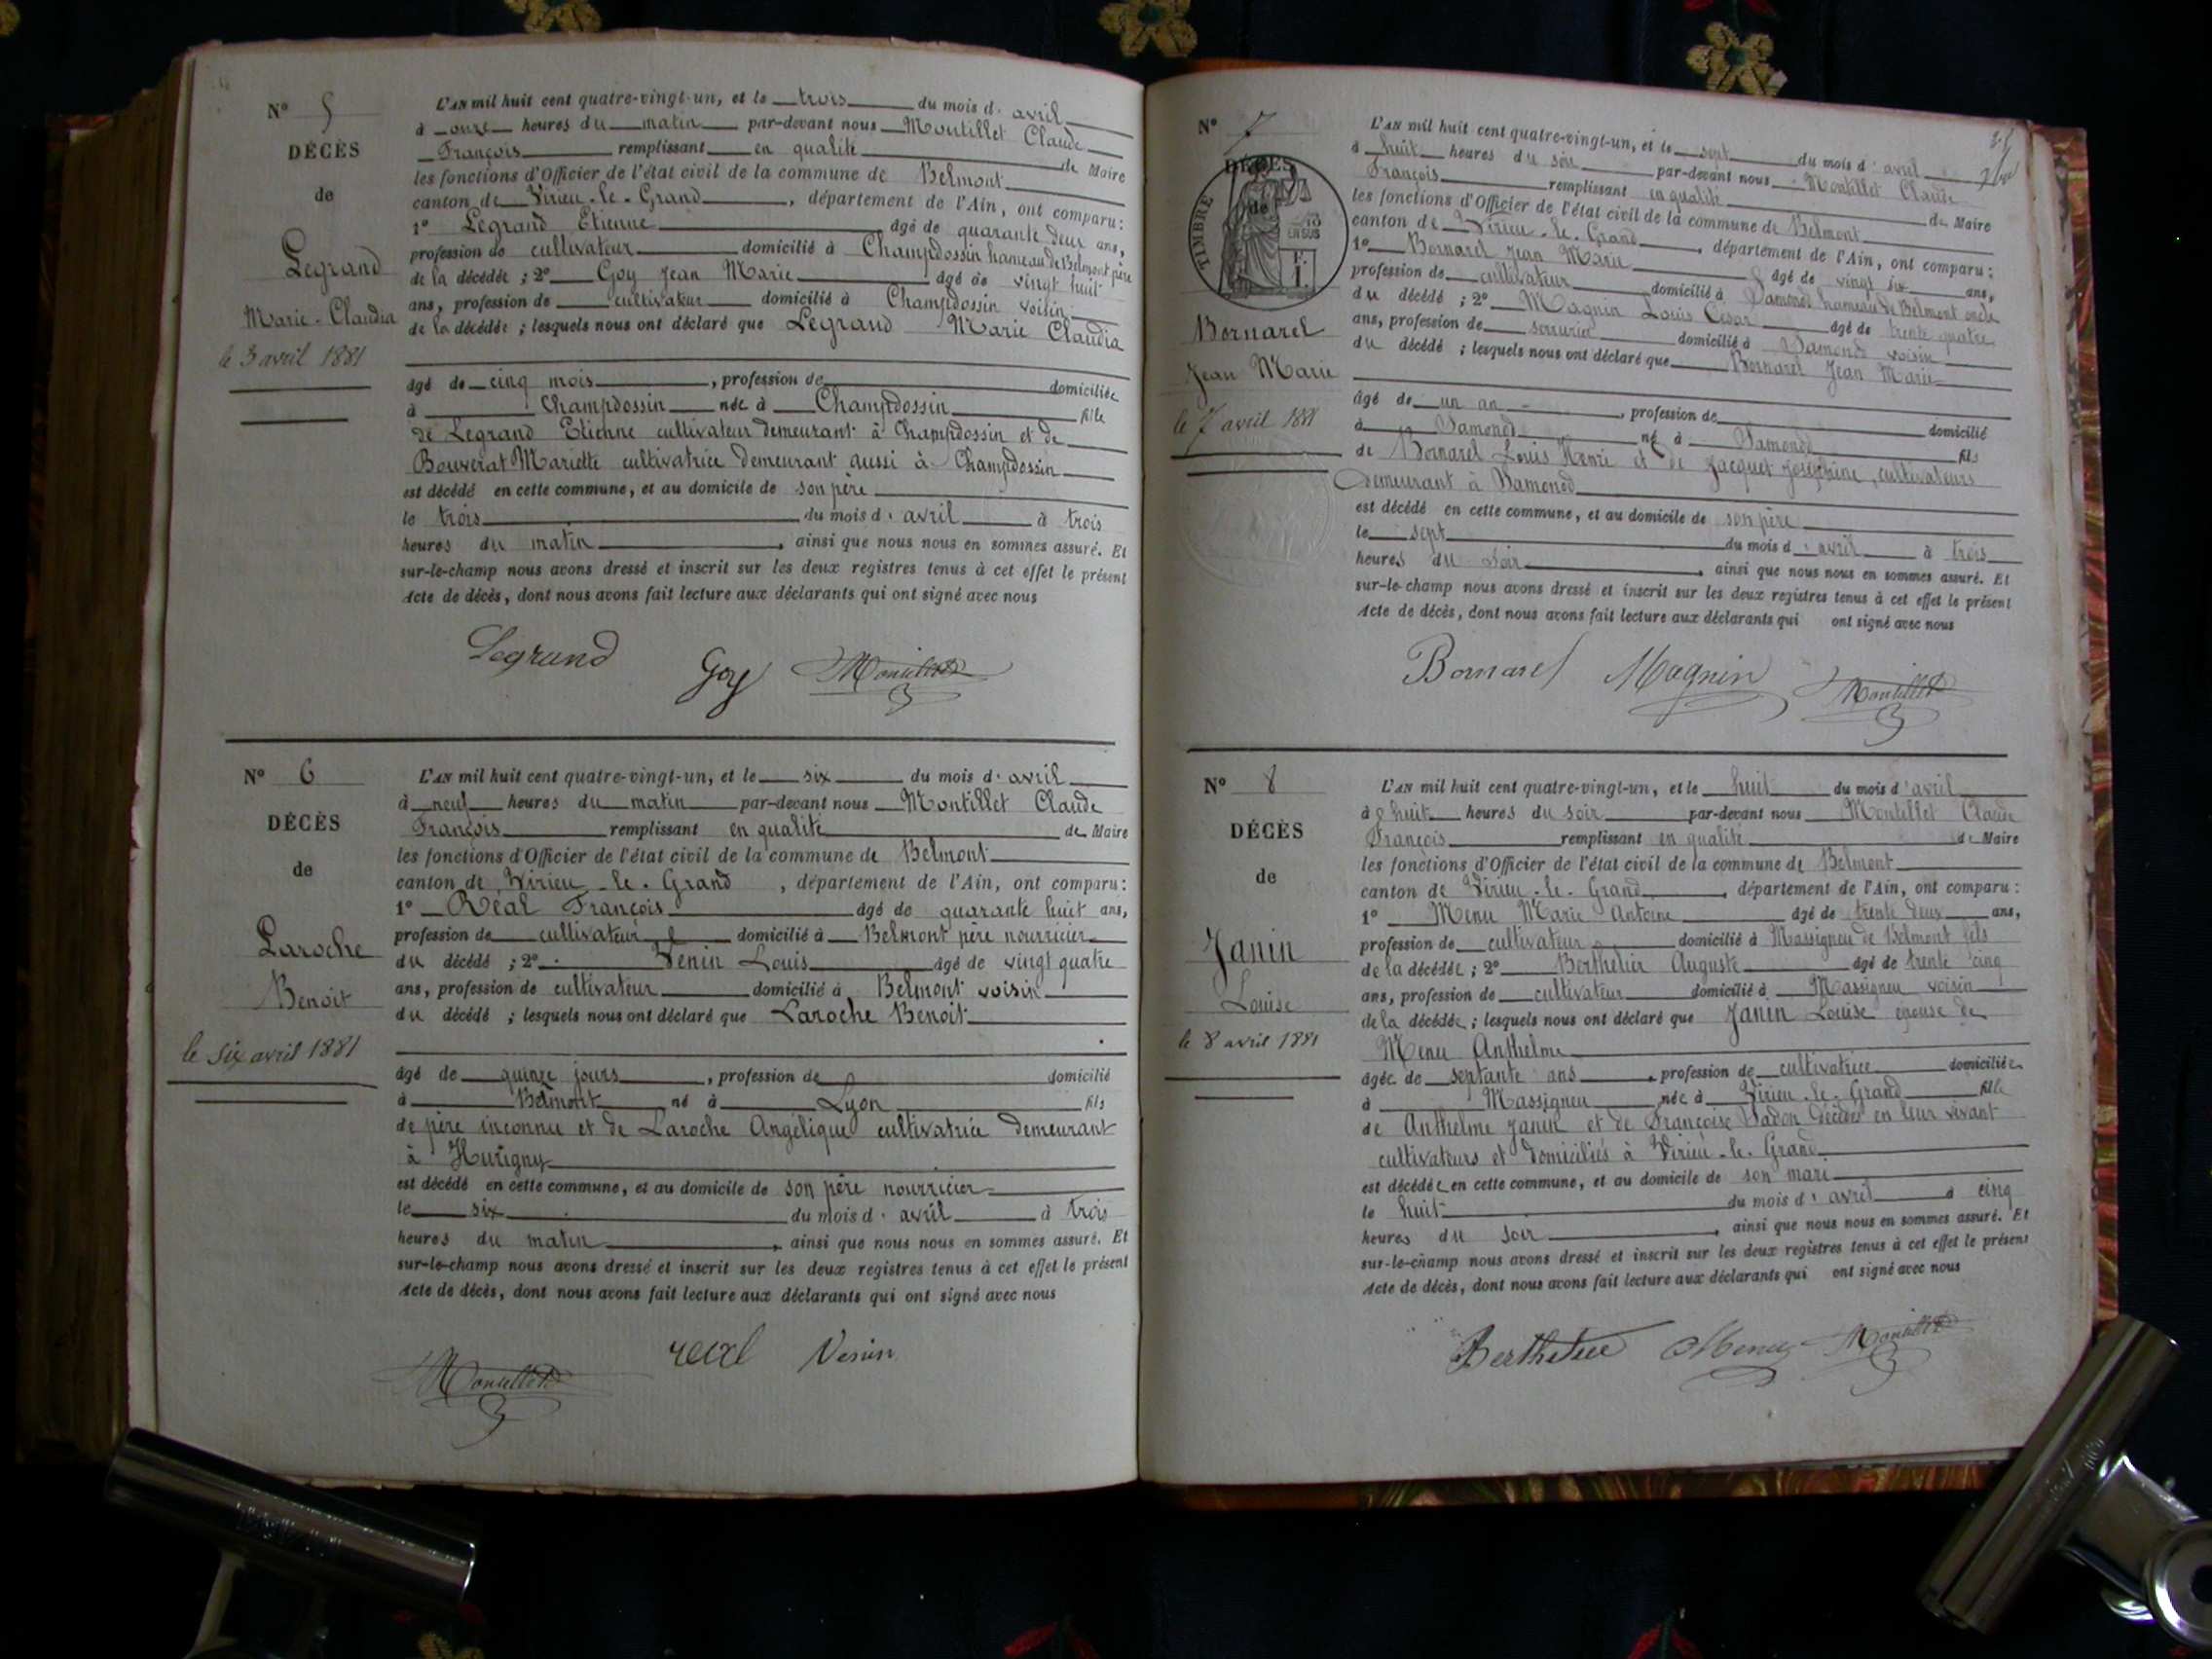 N° 5
DÉCÈS
de
Legrand
Marie-Claudia
le 3 avril 1881
L'AN mil huit cent quatre-vingt-un, et le trois du mois d' avril
à onze heures du matin par-devant nous Montillet Claude
François remplissant en qualité de Maire
les fonctions d'Officier de l'état civil de la commune de Belmont
canton de Virieu-le-Grand, département de l'Ain, ont comparu :
1° Legrand Etienne âgé de quarante deux ans,
profession de cultivateur domicilié à Champdossin hameau de Belmont père
de la décédée ; 2° Goy Jean Marie âgé de vingt huit
ans, profession de cultivateur domicilié à Champdossin voisin
de la décédée ; lesquels nous ont déclaré que Legrand Marie Claudia
âgé de cinq mois, profession de domiciliée
à Champdossin née à Champdossin fille
de Legrand Etienne cultivateur demeurant à Champdossin et de
Bouverat Mariette cultivatrice demeurant aussi à Champdossin
est décédé en cette commune, et au domicile de son père
le trois du mois d' avril à trois
heures du matin, ainsi que nous nous en sommes assuré. Et
sur-le-champ nous avons dressé et inscrit sur les deux registres tenus à cet effet le présent
Acte de décès, dont nous avons fait lecture aux déclarants qui ont signé avec nous
Legrand Goy Montillet
N° 6
DÉCÈS
de
Laroche
Benoit
le six avril 1881
L'AN mil huit cent quatre-vingt-un, et le six du mois d' avril
à neuf heures du matin par-devant nous Montillet Claude
François remplissant en qualité de Maire
les fonctions d'Officier de l'état civil de la commune de Belmont
canton de Virieu-le-Grand, département de l'Ain, ont comparu :
1° Réal François âgé de quarante huit ans,
profession de cultivateur domicilié à Belmont père nourricier
du décédé ; 2° Venin Louis âgé de vingt quatre
ans, profession de cultivateur domicilié à Belmont voisin
du décédé ; lesquels nous ont déclaré que Laroche Benoit
âgé de quinze jours, profession de domicilié
à Belmont né à Lyon fils
de père inconnu et de Laroche Angélique cultivatrice demeurant
à Hurigny
est décédé en cette commune, et au domicile de son père nourricier
le six du mois d' avril à trois
heures du matin, ainsi que nous nous en sommes assuré. Et
sur-le-champ nous avons dressé et inscrit sur les deux registres tenus à cet effet le présent
Acte de décès, dont nous avons fait lecture aux déclarants qui ont signé avec nous
Montillet real Venin
N° 7
DÉCÈS
de
TIMBRE
Bornarel
Jean Marie
le 7 avril 1881
L'AN mil huit cent quatre-vingt-un, et le sept du mois d' avril
à huit heures du soir par-devant nous Montillet Claude
François remplissant en qualité de Maire
les fonctions d'Officier de l'état civil de la commune de Belmont
canton de Virieu-le-Grand, département de l'Ain, ont comparu :
1° Bornarel Jean Marie âgé de vingt six ans,
profession de cultivateur domicilié à Samonod hameau de Belmont oncle
du décédé ; 2° Magnin Louis César âgé de trente quatre
ans, profession de serrurier domicilié à Samonod voisin
du décédé ; lesquels nous ont déclaré que Bornarel Jean Marie
âgé de un an, profession de domicilié
à Samonod né à Samonod fils
de Bornarel Louis Henri et de Jacquet Joséphine, cultivateurs
demeurant à Samonod
est décédé en cette commune, et au domicile de son père
le sept du mois d' avril à trois
heures du soir, ainsi que nous nous en sommes assuré. Et
sur-le-champ nous avons dressé et inscrit sur les deux registres tenus à cet effet le présent
Acte de décès, dont nous avons fait lecture aux déclarants qui ont signé avec nous
Bornarel Magnin Montillet
N° 8
DÉCÈS
de
Janin
Louise
le 8 avril 1881
L'AN mil huit cent quatre-vingt-un, et le huit du mois d' avril
à huit heures du soir par-devant nous Montillet Claude
François remplissant en qualité de Maire
les fonctions d'Officier de l'état civil de la commune de Belmont
canton de Virieu-le-Grand, département de l'Ain, ont comparu :
1° Menu Marie Antoine âgé de trente deux ans,
profession de cultivateur domicilié à Massigneu de Belmont fils
de la décédée ; 2° Berthelier Auguste âgé de trente cinq
ans, profession de cultivateur domicilié à Massigneu voisin
de la décédée ; lesquels nous ont déclaré que Janin Louise épouse de
Menu Anthelme
âgée de septante ans, profession de cultivatrice domiciliée
à Massigneu née à Virieu-le-Grand fille
de Anthelme Janin et de Françoise décédés en leur vivant
cultivateurs et domiciliés à Virieu-le-Grand
est décédée en cette commune, et au domicile de son mari
le huit du mois d' avril à cinq
heures du soir, ainsi que nous nous en sommes assuré. Et
sur-le-champ nous avons dressé et inscrit sur les deux registres tenus à cet effet le présent
Acte de décès, dont nous avons fait lecture aux déclarants qui ont signé avec nous
Berthelier Menu Montillet